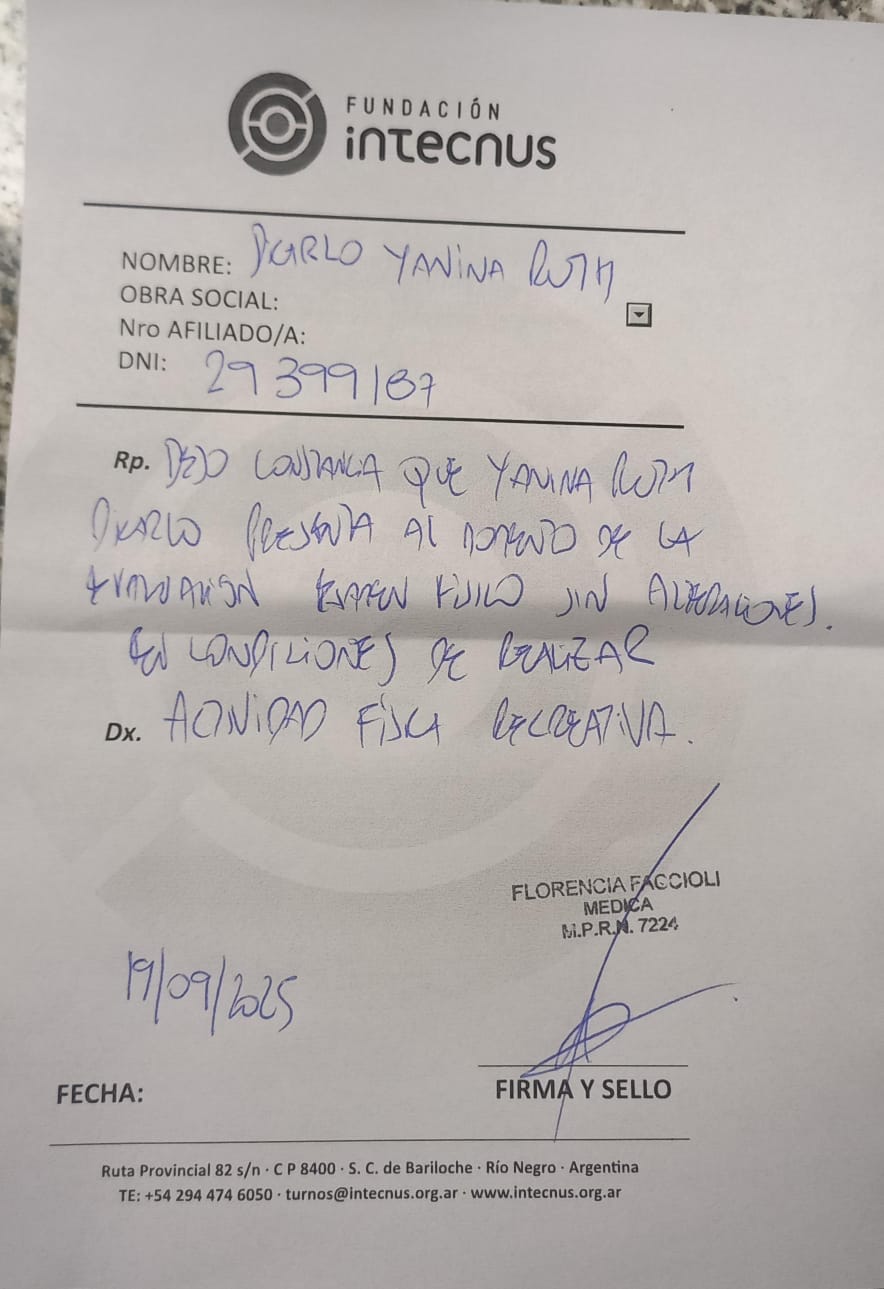 FUNDACIÓN
intecnus
NOMBRE: YANINA RUTH
OBRA SOCIAL:
Nro AFILIADO/A:
DNI: 29 399 187
Rp. DEJO CONSTANCIA QUE YANINA RUTH
PRESENTA AL MOMENTO DE LA
EVALUACIÓN EXAMEN FÍSICO SIN ALTERACIONES.
EN CONDICIONES DE REALIZAR
Dx. ACTIVIDAD FÍSICA RECREATIVA.
FLORENCIA FACCIOLI
MEDICA
M.P.R.N. 7224
19/09/2025
FECHA:
FIRMA Y SELLO
Ruta Provincial 82 s/n · C P 8400 · S. C. de Bariloche · Río Negro · Argentina
TE: +54 294 474 6050 · turnos@intecnus.org.ar · www.intecnus.org.ar